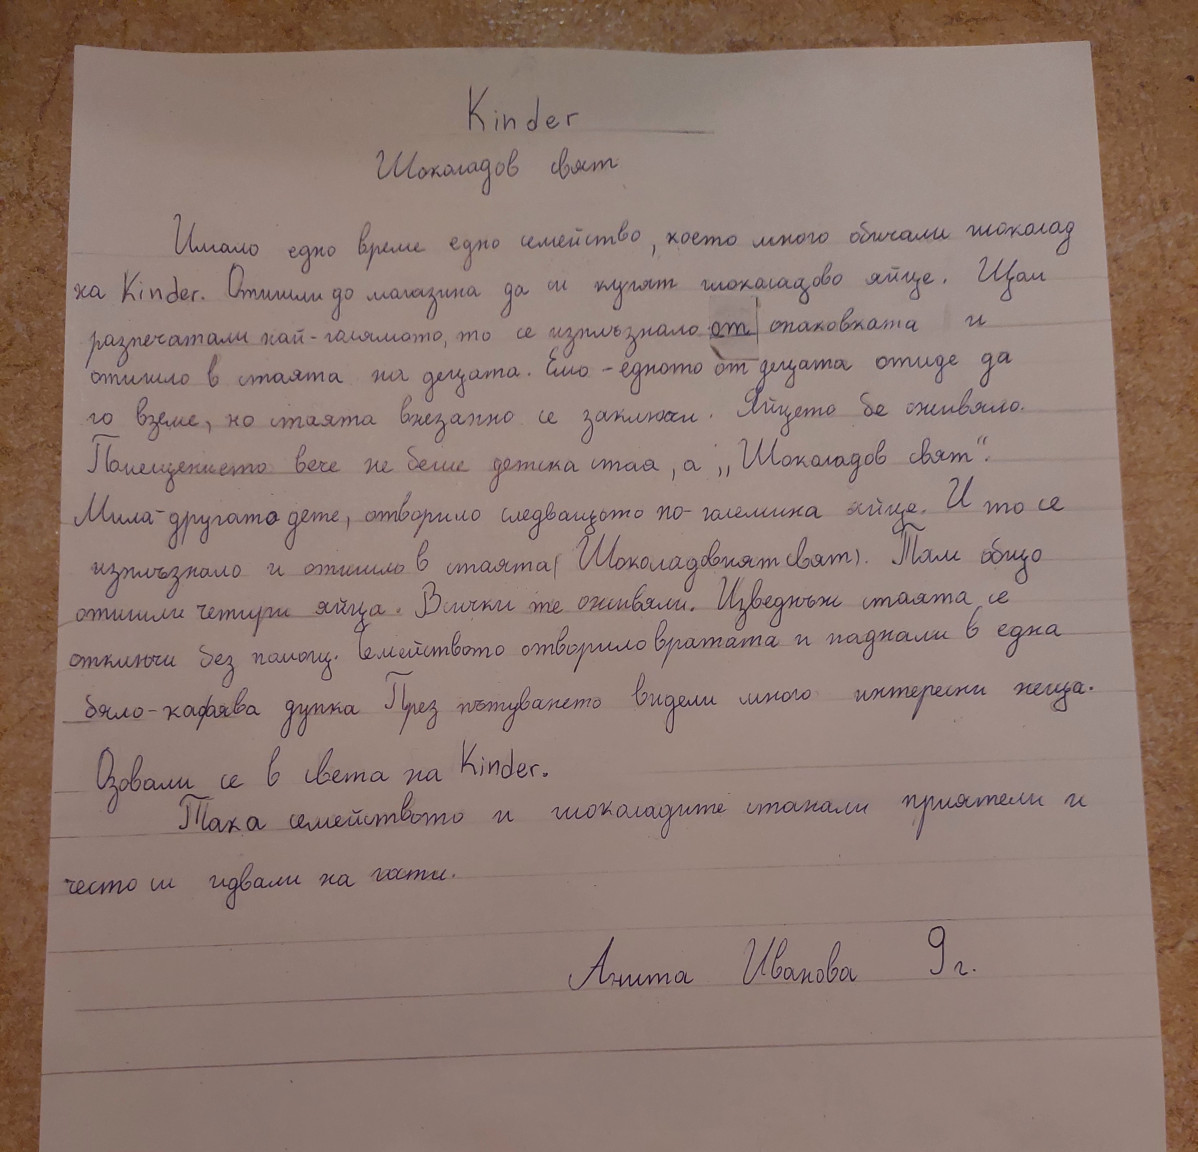 Kinder
Шоколадов свят
Имало едно време едно семейство, което много обичали шоколад
на Kinder. Отишли до магазина да си купят шоколадово яйце. Щом
разпечатали най-голямото, то се изплъзнало от опаковката и
отишло в стаята на децата. Емо - едното от децата отиде да
го вземе, но стаята внезапно се заключи. Яйцето бе оживяло.
Помещението вече не беше детска стая, а „Шоколадов свят“.
Мила-другато дете, отворило следващото по-големина яйце. И то се
изплъзнало и отишло в стаята( Шоколадовият свят). Там общо
отишли четири яйца. Всички те оживяли. Изведнъж стаята се
отключи без помощ. Семейството отворило вратата и паднали в една
бяло-кафява дупка През пътуването видели много интересни неща.
Озовали се в света на Kinder.
Така семейството и шоколадите станали приятели и
често си идвали на гости.
Анита Иванова 9г.